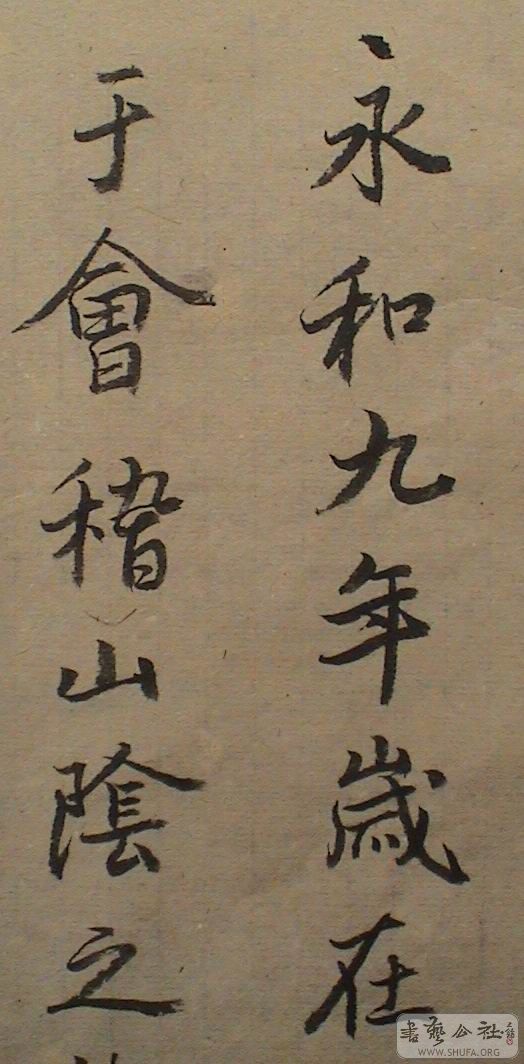 永和九年歲在
于會稽山陰之
書藝公社
WWW.SHUFA.ORG